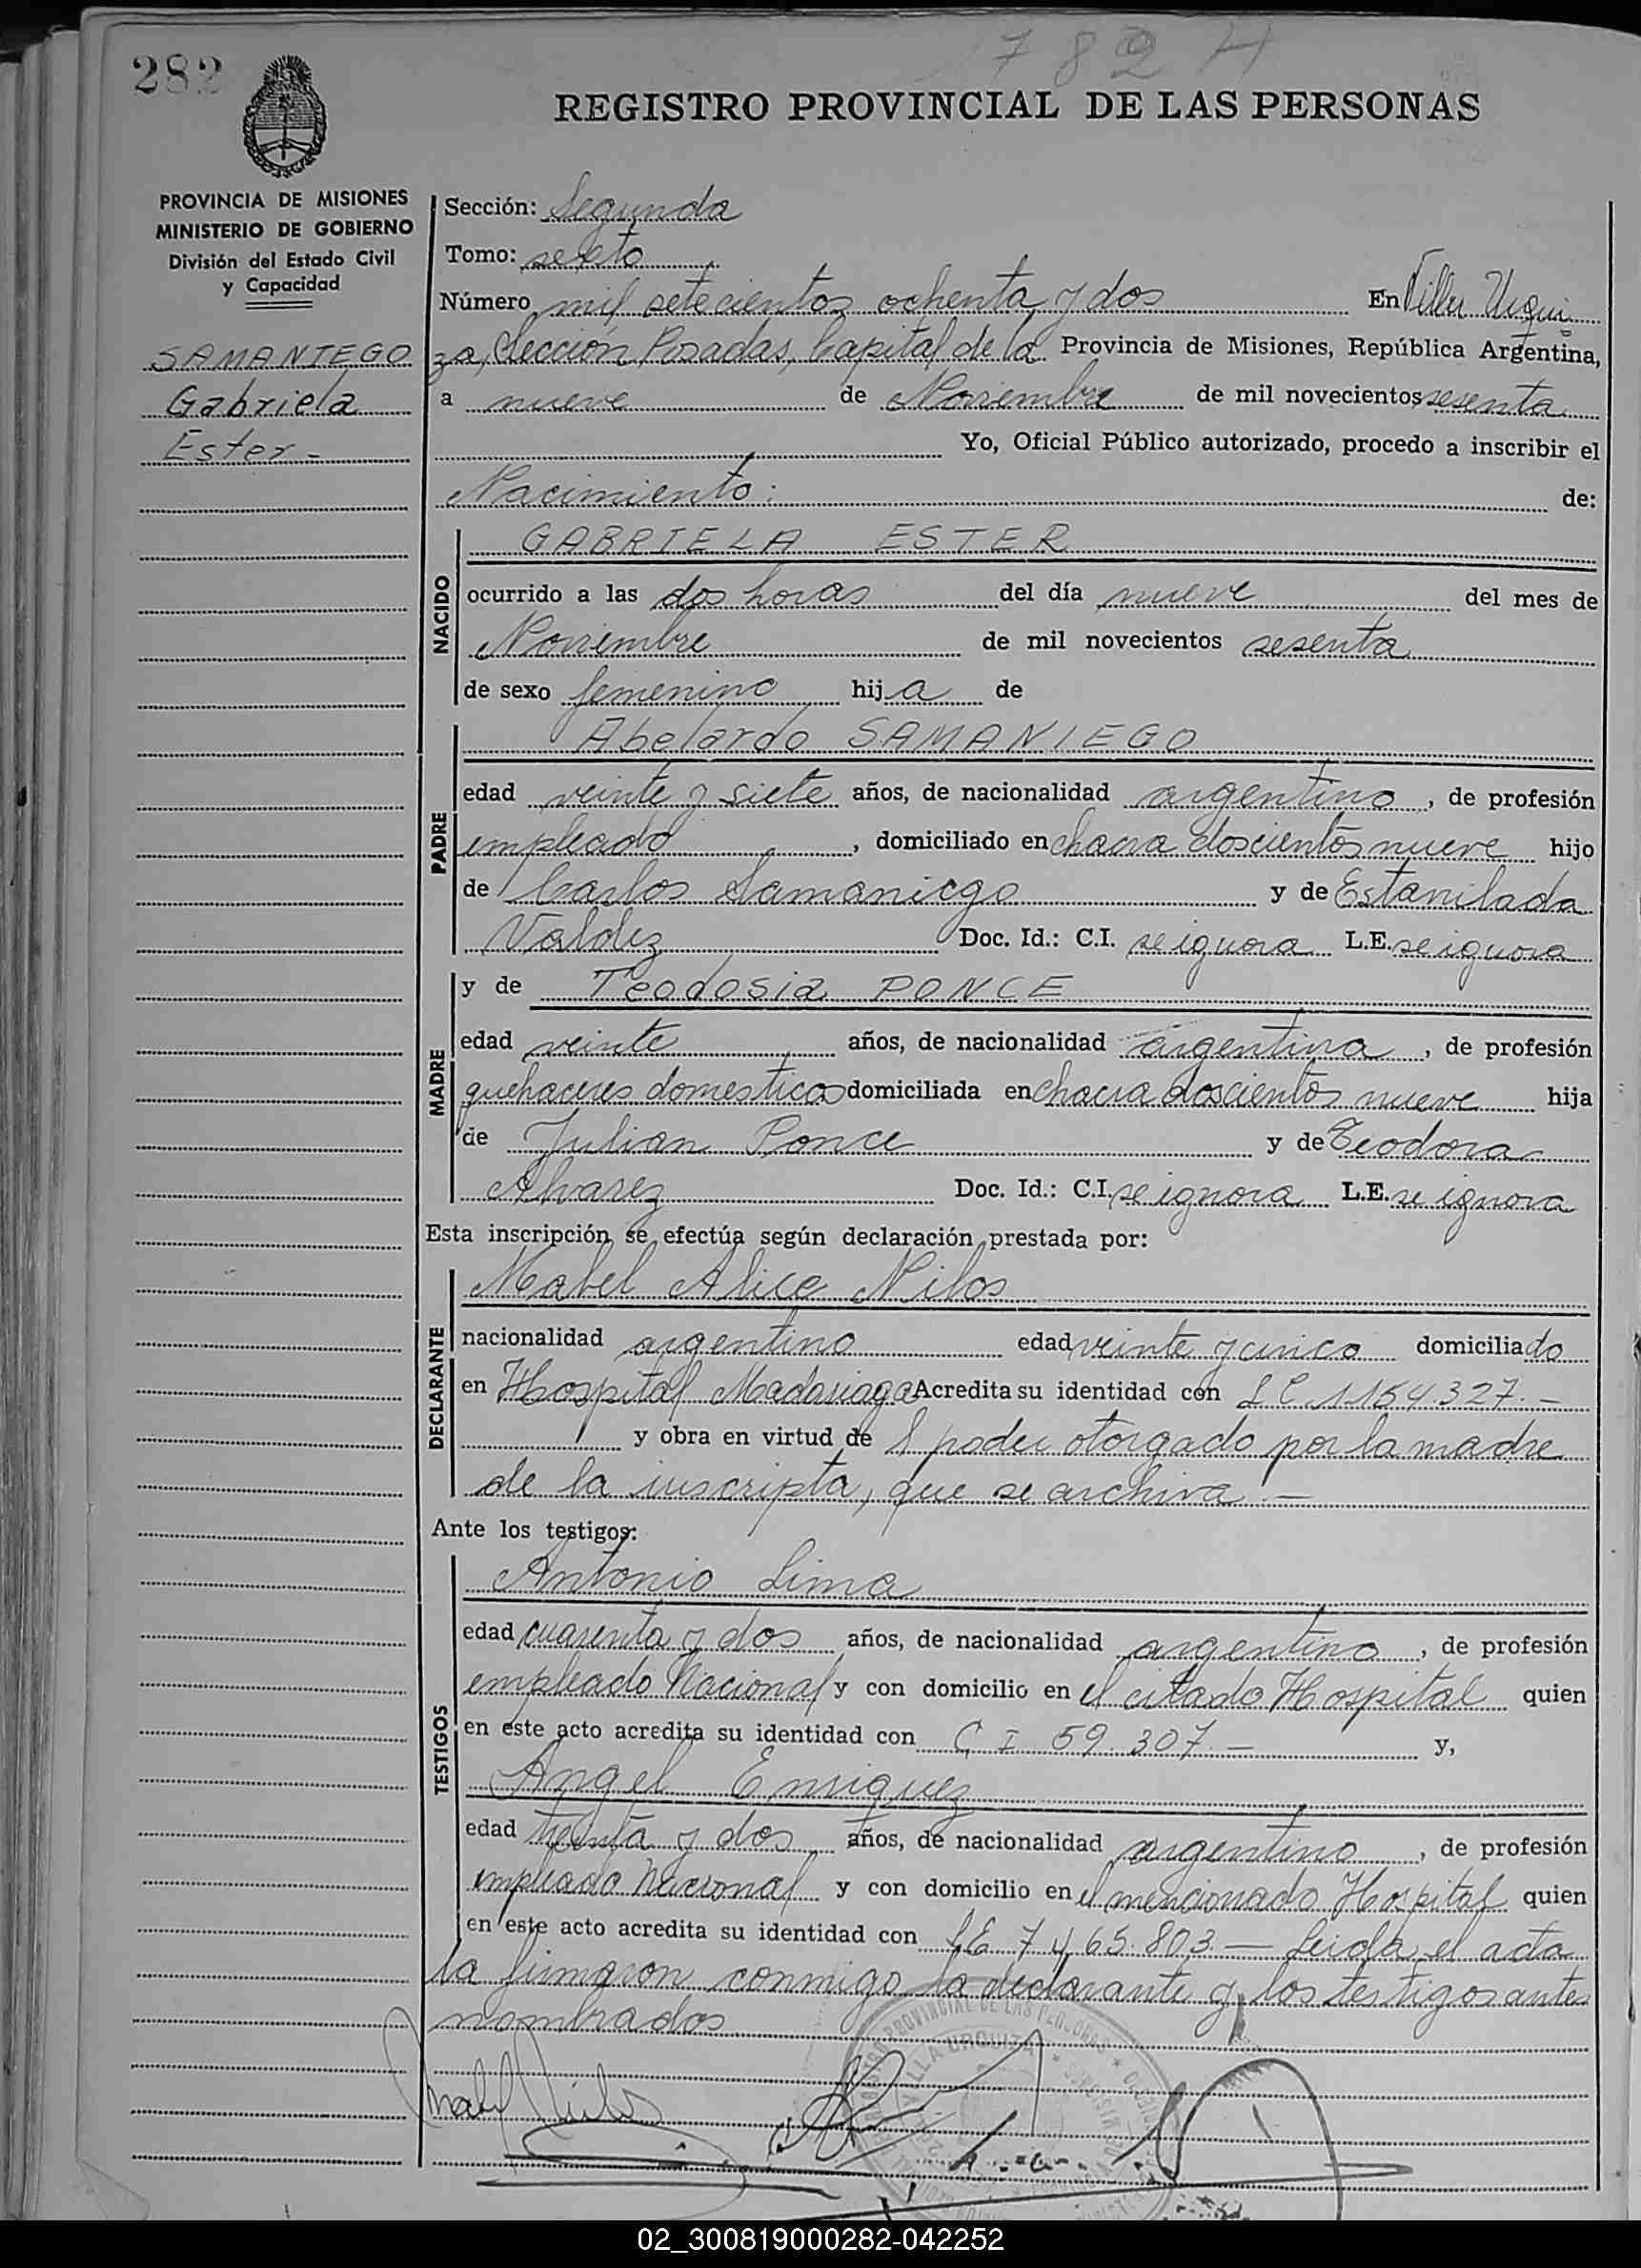 282
REGISTRO PROVINCIAL DE LAS PERSONAS
PROVINCIA DE MISIONES
MINISTERIO DE GOBIERNO
División del Estado Civil
y Capacidad
SAMANIEGO
Gabriela
Ester -
Sección: Segunda
Tomo: sexto
Número mil setecientos ochenta y dos En Villa Urqui
za, Sección Posadas, Capital de la Provincia de Misiones, República Argentina,
a nueve de Noviembre de mil novecientos sesenta
Yo, Oficial Público autorizado, procedo a inscribir el
Nacimiento: de:
NACIDO
GABRIELA ESTER
ocurrido a las dos horas del día nueve del mes de
Noviembre de mil novecientos sesenta
de sexo femenino hija de
PADRE
Abelardo SAMANIEGO
edad veinte y siete años, de nacionalidad argentino, de profesión
empleado, domiciliado en chacra doscientos nueve hijo
de Carlos Samaniego y de Estanilada
Valdez Doc. Id.: C.I. se ignora L.E. se ignora
MADRE
y de Teodosia PONCE
edad veinte años, de nacionalidad argentina, de profesión
quehaceres domesticos domiciliada en chacra doscientos nueve hija
de Julian Ponce y de Teodora
Alvarez Doc. Id.: C.I. se ignora L.E. se ignora
Esta inscripción se efectúa según declaración prestada por:
DECLARANTE
Mabel Alice Nilos
nacionalidad argentino edad veinte y cinco domiciliado
en Hospital Madariaga Acredita su identidad con L C 1154.327.-
y obra en virtud de l poder otorgado por la madre
de la inscripta, que se archiva -
Ante los testigos:
TESTIGOS
Antonio Lima
edad cuarenta y dos años, de nacionalidad argentino, de profesión
empleado Nacional y con domicilio en el citado Hospital quien
en este acto acredita su identidad con C I 59.307.- y,
Angel Enriquez
edad treinta y dos años, de nacionalidad argentino, de profesión
empleado Nacional y con domicilio en el mencionado Hospital quien
en este acto acredita su identidad con LE 7.465.803.- Leida el acta
la firmaron conmigo la declarante y los testigos antes
nombrados
02_300819000282-042252